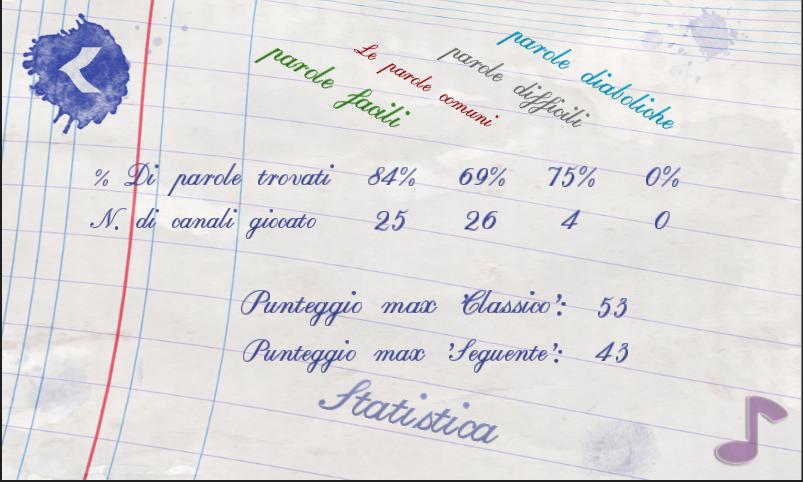 parole facili
Le parole comuni
parole difficili
parole diaboliche
% Di parole trovati 84% 69% 75% 0%
N. di canali giocato 25 26 4 0
Punteggio max 'Classico': 53
Punteggio max 'Seguente': 43
Statistica